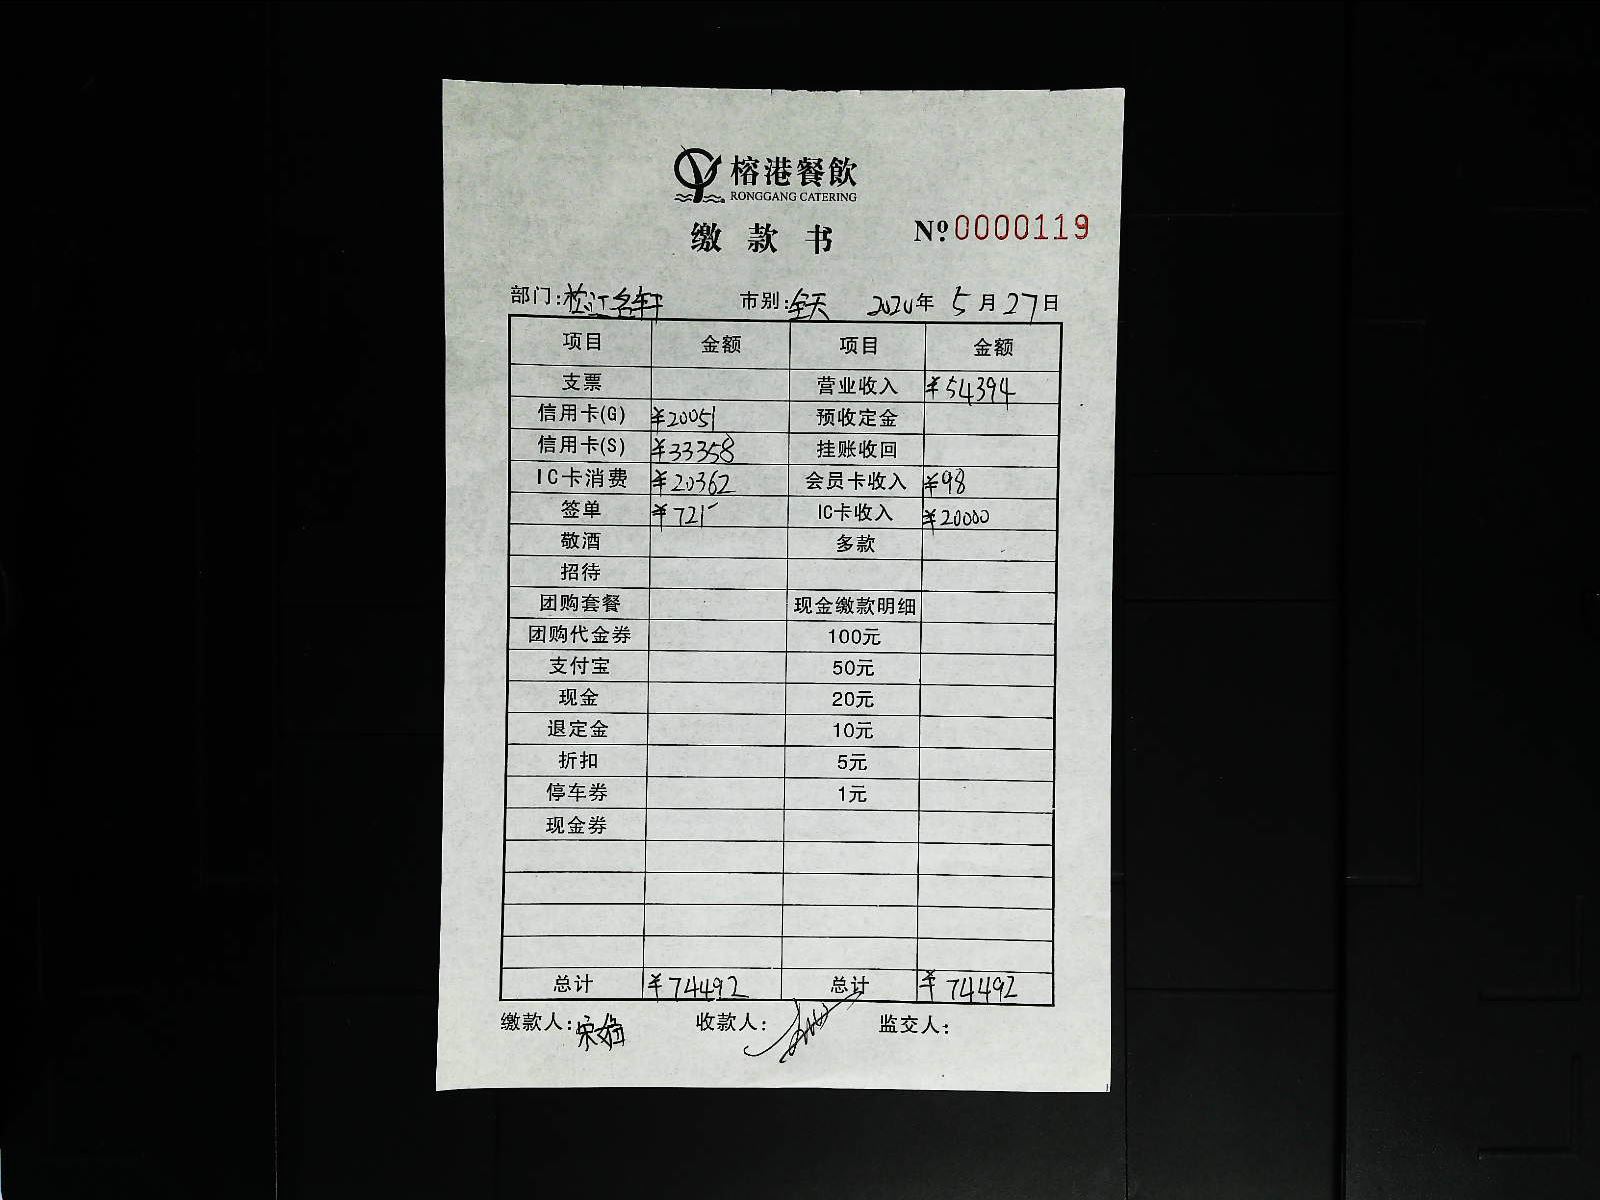 榕港餐飲
RONGGANG CATERING
缴款书 №0000119
部门:松江名轩 市别:全天 2020年5月27日
项目 金额 项目 金额
支票 营业收入 ¥54394
信用卡(G) ¥20051 预收定金
信用卡(S) ¥33358 挂账收回
IC卡消费 ¥20362 会员卡收入 ¥98
签单 ¥721 IC卡收入 ¥20000
敬酒 多款
招待
团购套餐 现金缴款明细
团购代金券 100元
支付宝 50元
现金 20元
退定金 10元
折扣 5元
停车券 1元
现金券
总计 ¥74492 总计 ¥74492
缴款人: 收款人: 监交人: